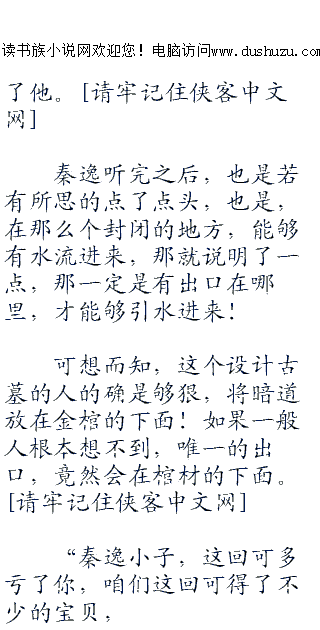 读书族小说网欢迎您！电脑访问www.dushuzu.com
了他。[请牢记住侠客中文
网]
秦逸听完之后，也是若
有所思的点了点头，也是，
在那么个封闭的地方，能够
有水流进来，那就说明了一
点，那一定是有出口在哪
里，才能够引水进来！
可想而知，这个设计古
墓的人的确是够狠，将暗道
放在金棺的下面！如果一般
人根本想不到，唯一的出
口，竟然会在棺材的下面。
[请牢记住侠客中文网]
“秦逸小子，这回可多
亏了你，咱们这回可得了不
少的宝贝，